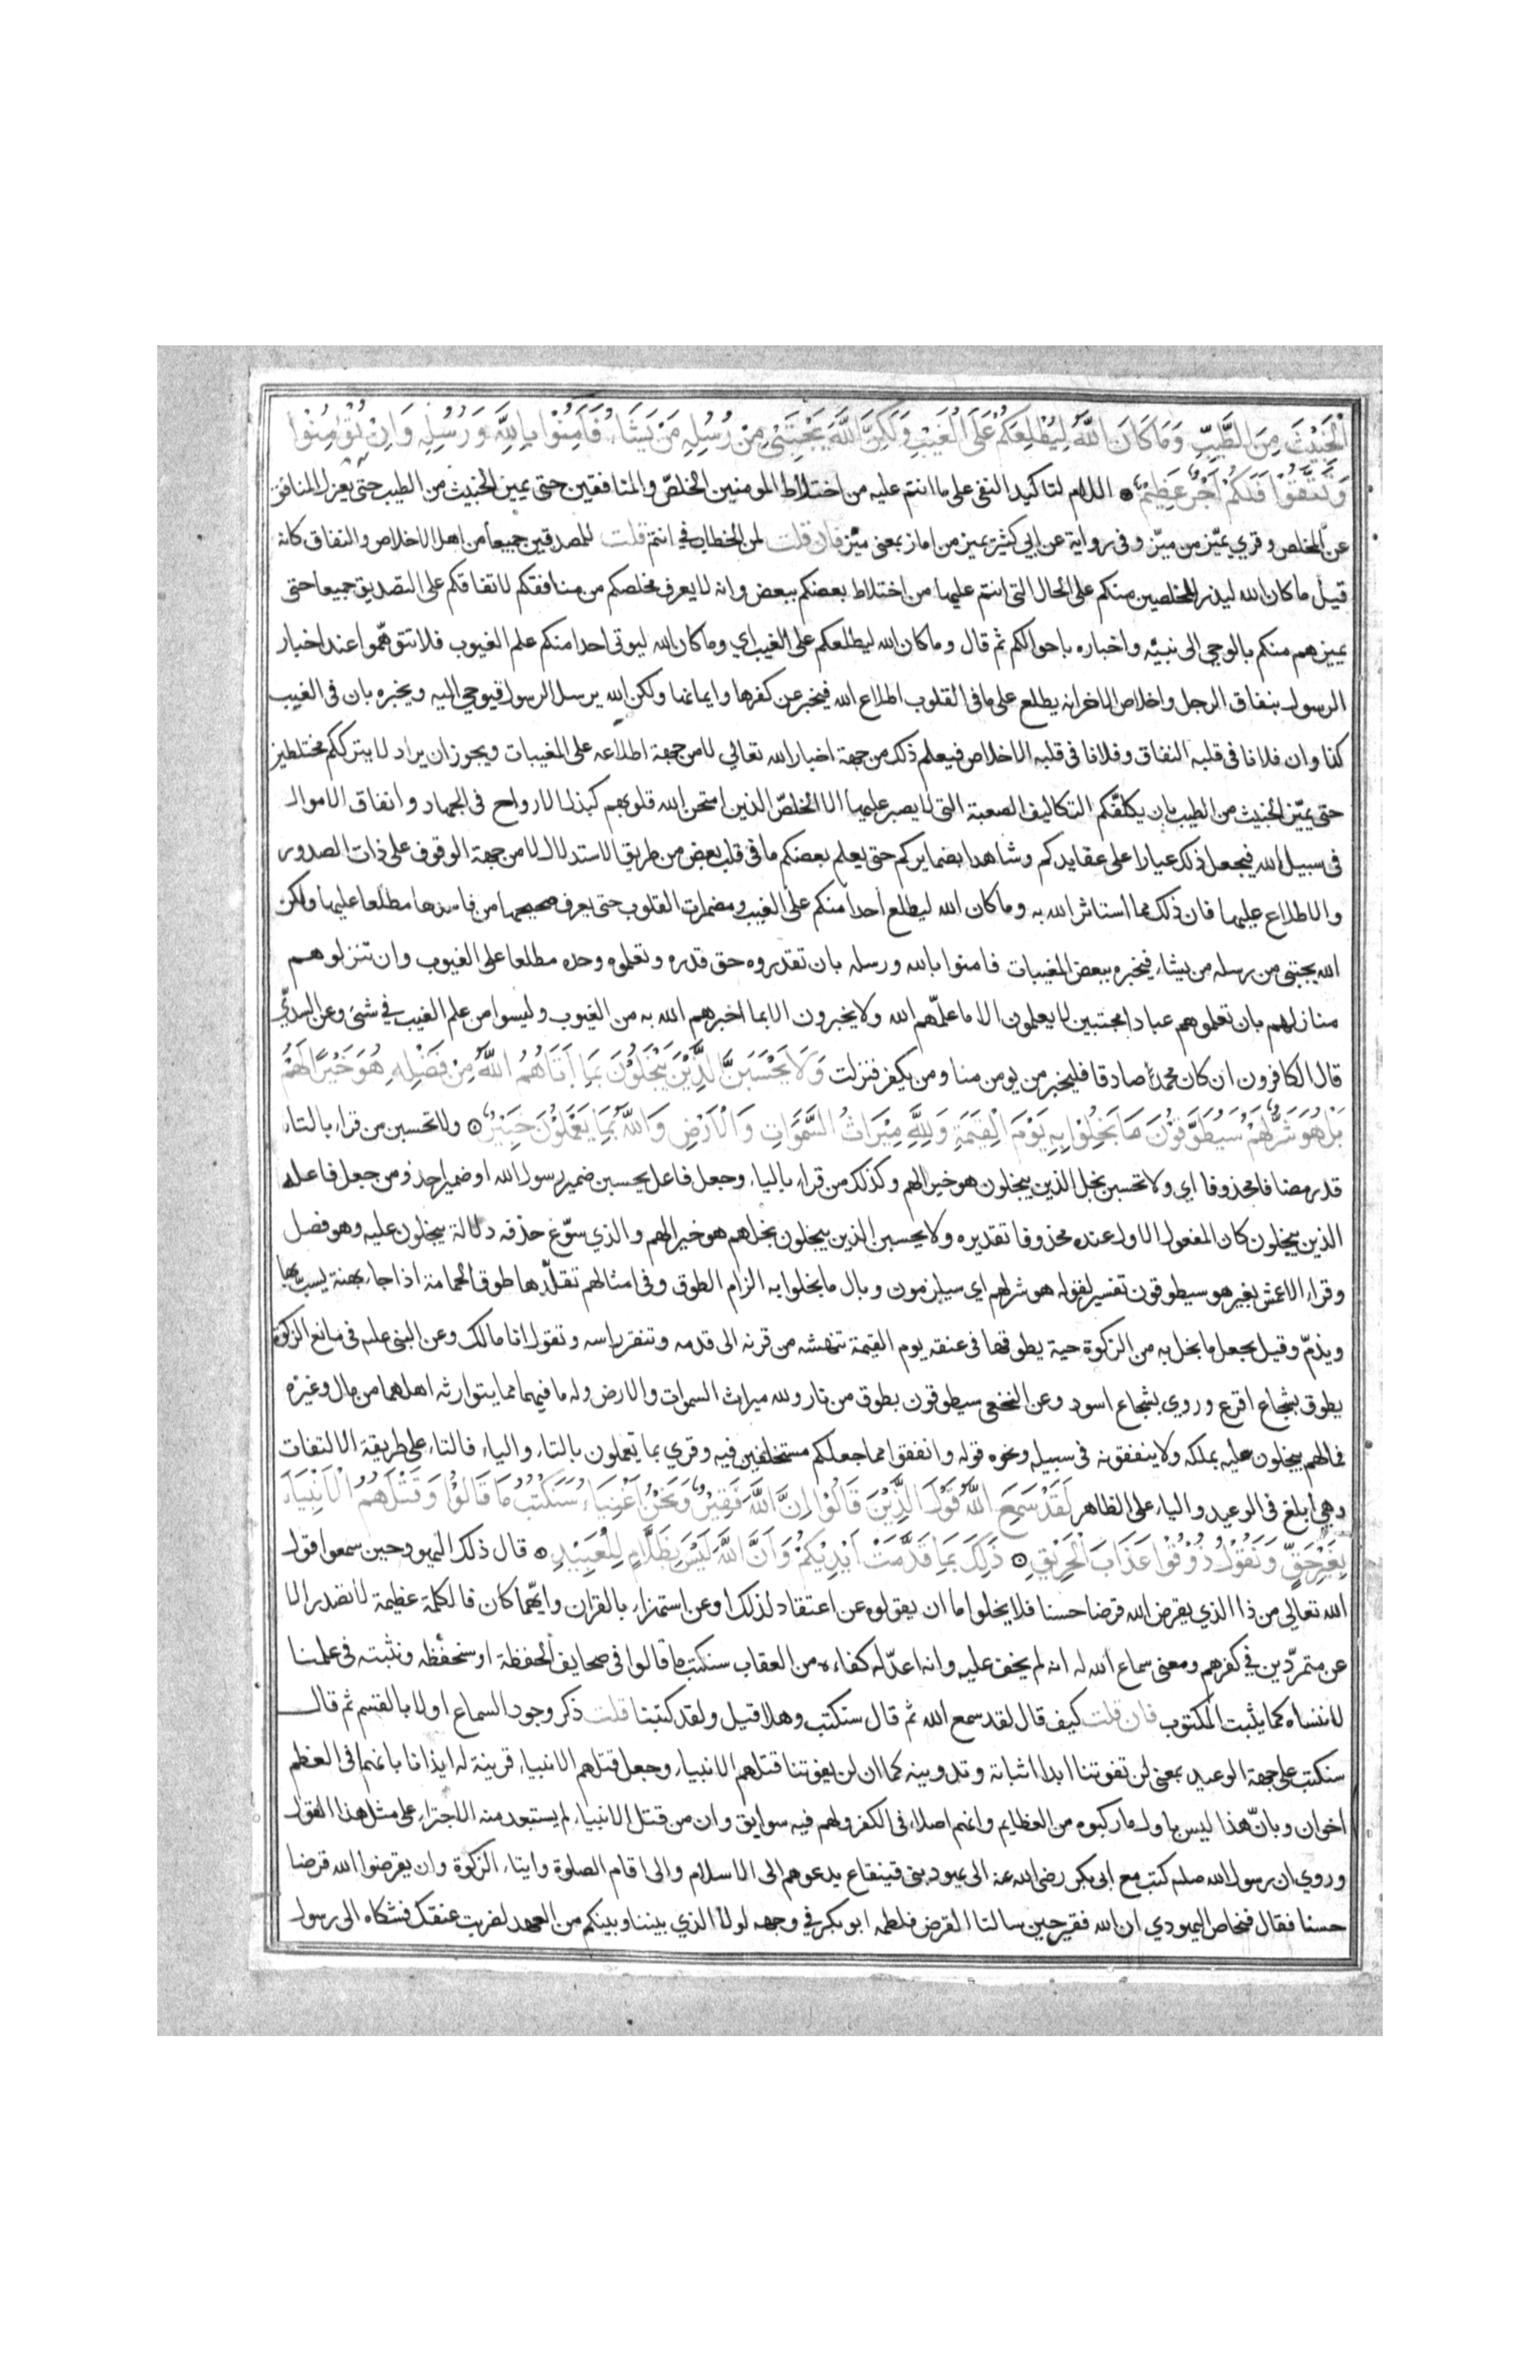 الْخَبِيْثَ مِنَ الطَّيِّبِ وَمَا كَانَ اللّٰهُ لِيُطْلِعَكُمْ عَلَى الْغَيْبِ وَلَكِنَّ اللّٰهَ يَجْتَبِيْ مِنْ رُسُلِهِ مَنْ يَشَاءُ فَآمِنُوْا بِاللّٰهِ وَرُسُلِهِ وَاِنْ تُؤْمِنُوْا
وَتَتَّقُوْا فَلَكُمْ اَجْرٌ عَظِيْمٌ ۞ اللام لتاكيد النفى على ما انتم عليه من اختلاط المومنين الخلصّ والمنافقين حتى يميز الخبيث من الطيب حتى يعزل المنافق
عن المخلص وقري يميّز من ميّز وفى رواية عن ابي كثير يميز من اماز بمعنى ميّز فان قلت لمن الخطاب في انتم قلت للمصدقين جميعا من اهل الاخلاص والنفاق كانه
قيل ما كان الله ليذر المخلصين منكم على الحال التى انتم عليها من اختلاط بعضكم ببعض وانه لا يعرف مخلصكم من منافقكم لاتفاقكم على التصديق جميعا حتى
يميزهم منكم بالوحي الى نبيّه واخباره باحوالكم ثم قال وما كان الله ليطلعكم على الغيب اي وما كان الله ليوتى احدا منكم علم الغيوب فلا تتوهّموا عند اخبار
الرسول بنفاق الرجل واخلاص الاخر انه يطلع على ما فى القلوب اطلاع الله فيخبر عن كفرها وايمانها ولكن الله يرسل الرسول فيوحي اليه ويخبره بان فى الغيب
كذا وان فلانا فى قلبه النفاق وفلانا فى قلبه الاخلاص فيعلم ذلك من جهة اخبار الله تعالي لا من جهة اطلاعه على المغيبات ويجوز ان يراد لا يترككم مختلطين
حتى يميّز الخبيث من الطيب بان يكلفّكم التكاليف الصعبة التى لا يصبر عليها الا الخلصّ الذين امتحن الله قلوبهم كبذل الارواح فى الجهاد وانفاق الاموال
فى سبيل الله فيجعل ذلك عيارا على عقايدكم وشاهدا بضمايركم حتى يعلم بعضكم ما فى قلب بعض من طريق الاستدلال لا من جهة الوقوف على ذات الصدور
والاطلاع عليها فان ذلك مما استاثر الله به وما كان الله ليطلع احدا منكم على الغيب ومضمرات القلوب حتى يعرف صحيحها من فاسدها مطلعا عليها ولكن
الله يجتبى من رسله من يشاء فيخبره ببعض المغيبات فامنوا بالله ورسله بان تقدروه حق قدره وتعلموه وحده مطلعا على الغيوب وان تنزلوهم
منازلهم بان تعلموهم عبادا مجتبين لا يعلمون الا ما علّمهم الله ولا يخبرون الا بما اخبرهم الله به من الغيوب وليسوا من علم الغيب في شئ وعن السدّيّ
قال الكافرون ان كان محمدا صادقا فليخبر من يومن منا ومن يكفر فنزلت وَلَا يَحْسَبَنَّ الَّذِيْنَ يَبْخَلُوْنَ بِمَا اٰتَاهُمُ اللّٰهُ مِنْ فَضْلِهِ هُوَ خَيْرًا لَهُمْ
بَلْ هُوَ شَرٌّ لَهُمْ سَيُطَوَّقُوْنَ مَا بَخِلُوْا بِهِ يَوْمَ الْقِيٰمَةِ وَلِلّٰهِ مِيْرَاثُ السَّمٰوَاتِ وَالْاَرْضِ وَاللّٰهُ بِمَا يَعْمَلُوْنَ خَبِيْرٌ ۞ ولا تحسبن من قراء بالتاء
قدر مضافا محذوفا اي ولا تحسبن بخل الذين يبخلون هو خيرا لهم وكذلك من قراء بالياء وجعل فاعل يحسبن ضمير رسول الله او ضمير احد ومن جعل فاعله
الذين يبخلون كان المفعول الاول عنده محذوفا تقديره ولا يحسبن الذين يبخلون بخلهم هو خيرا لهم والذي سوّغ حذفه دلالة يبخلون عليه وهو فصل
وقراء الاعمش بغير هو سيطوقون تفسير لقوله هو شر لهم اي سيلزمون وبال ما بخلوا به الزام الطوق وفى امثالهم تقلّدها طوق الحمامة اذا جاء بهنة يسبّ بها
ويذمّ وقيل يجعل ما بخل به من الزكوة حية يطوقها فى عنقه يوم القيمة تنهشه من قرنه الى قدمه وتنقر راسه وتقول انا مالك وعن النبى علم فى مانع الزكوة
يطوق بشجاع اقرع وروي بشجاع اسود وعن النخعى سيطوقون بطوق من نار ولله ميراث السموات والارض وله ما فيهما مما يتوارثه اهلهما من مال وغيره
فما لهم يبخلون عليه بملكه ولا ينفقونه فى سبيله ونحوه قوله وانفقوا مما جعلكم مستخلفين فيه وقري بما تعملون بالتاء والياء فالتاء على طريقة الالتفات
وهي ابلغ فى الوعيد والياء على الظاهر لَقَدْ سَمِعَ اللّٰهُ قَوْلَ الَّذِيْنَ قَالُوْا اِنَّ اللّٰهَ فَقِيْرٌ وَنَحْنُ اَغْنِيَاءُ سَنَكْتُبُ مَا قَالُوْا وَقَتْلَهُمُ الْاَنْبِيَاءَ
بِغَيْرِ حَقٍّ وَنَقُوْلُ ذُوْقُوْا عَذَابَ الْحَرِيْقِ ۞ ذٰلِكَ بِمَا قَدَّمَتْ اَيْدِيْكُمْ وَاَنَّ اللّٰهَ لَيْسَ بِظَلَّامٍ لِلْعَبِيْدِ ۞ قال ذلك اليهود حين سمعوا قول
الله تعالي من ذا الذي يقرض الله قرضا حسنا فلا يخلوا ما ان يقولوه عن اعتقاد لذلك او عن استهزاء بالقران وايّهما كان فالكلمة عظيمة لا تصدر الا
عن متمرّدين في كفرهم ومعنى سماع الله له انه لم يخف عليه وانه اعدّ له كفاءه من العقاب سنكتب ما قالوا فى صحايف الحفظة او سنحفظه ونثبته فى علمنا
لا ننساه كما يثبت المكتوب فان قلت كيف قال لقد سمع الله ثم قال سنكتب وهلا قيل ولقد كتبنا قلت ذكر وجود السماع اولا بالقسم ثم قال
سنكتب على جهة الوعيد بمعنى لن تفوتنا ابدا اثباته وتدوينه كما ان لن يفوتنا قتلهم الانبياء وجعل قتلهم الانبياء قرينة له ايذانا بانهما فى العظم
اخوان وبانّ هذا ليس باول ما ركبوه من العظايم وانهم اصلاء فى الكفر ولهم فيه سوابق وان من قتل الانبياء لم يستبعد منه الاجتراء على مثل هذا القول
وروي ان رسول الله صلم كتب مع ابى بكر رضى الله عنه الى يهود بنى قينقاع يدعوهم الى الاسلام والى اقام الصلوة وايتاء الزكوة وان يقرضوا الله قرضا
حسنا فقال فنحاص اليهودي ان الله فقير حين سالنا القرض فلطمه ابو بكر في وجهه لولا الذي بيننا وبينكم من العهد لضربت عنقك فشكاه الى رسول